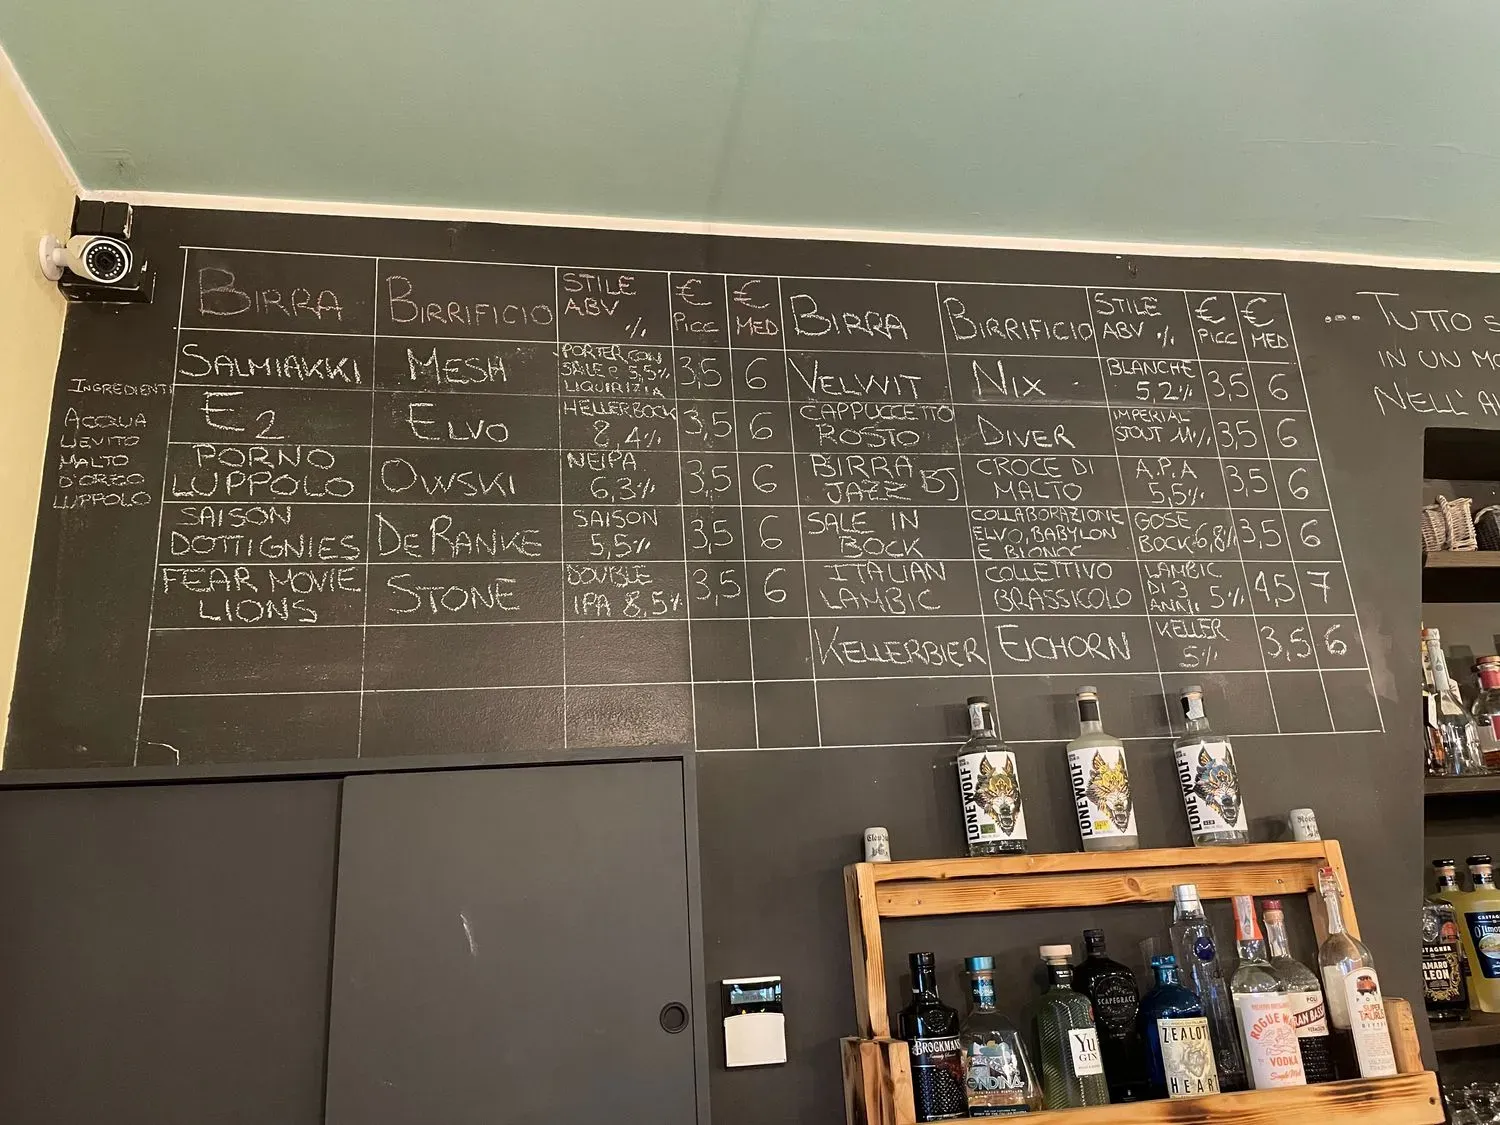 BIRRA BIRRIFICIO STILE ABV % € PICC € MED BIRRA BIRRIFICIO STILE ABV % € PICC € MED
SALMIAKKI MESH PORTER CON SALE E 5,5% LIQUIRIZIA 3,5 6 VELWIT NIX BLANCHE 5,2% 3,5 6
E2 ELVO HELLERBOCK 8,4% 3,5 6 CAPPUCCETTO ROSTO DIVER IMPERIAL STOUT 11% 3,5 6
PORNO LUPPOLO OWSKI NEIPA 6,3% 3,5 6 BIRRA JAZZ BJ CROCE DI MALTO A.P.A 5,5% 3,5 6
SAISON DOTTIGNIES DE RANKE SAISON 5,5% 3,5 6 SALE IN BOCK COLLABORAZIONE ELVO, BABYLON E GOSE BOCK 6,8% 3,5 6
FEAR MOVIE LIONS STONE DOUBLE IPA 8,5% 3,5 6 ITALIAN LAMBIC COLLETTIVO BRASSICOLO LAMBIC DI 3 ANNI 5% 4,5 7
KELLERBIER EICHORN KELLER 5% 3,5 6
INGREDIENTI
ACQUA
LIEVITO
MALTO
D'ORZO
LUPPOLO
... TUTTO S
IN UN MO
NELL'A
LONEWOLF
LONEWOLF
LONEWOLF
BROCKMANS
ONDINA
YU
GIN
SCAPEGRACE
ZEALOT'S
HEART
ROGUE
VODKA
POLI
AMARO